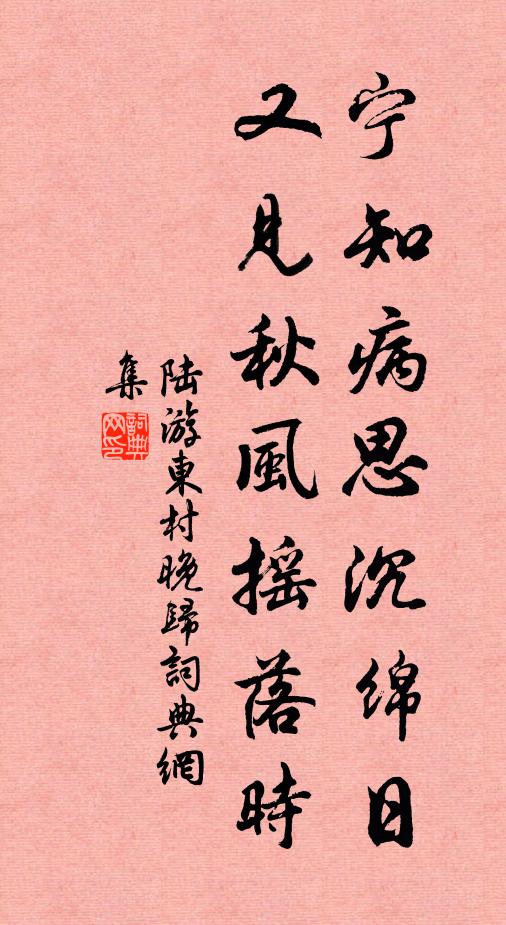 宁知病思沉绵日
又见秋風摇落時
陆游東村晚歸詞典網
集
詞典
网印